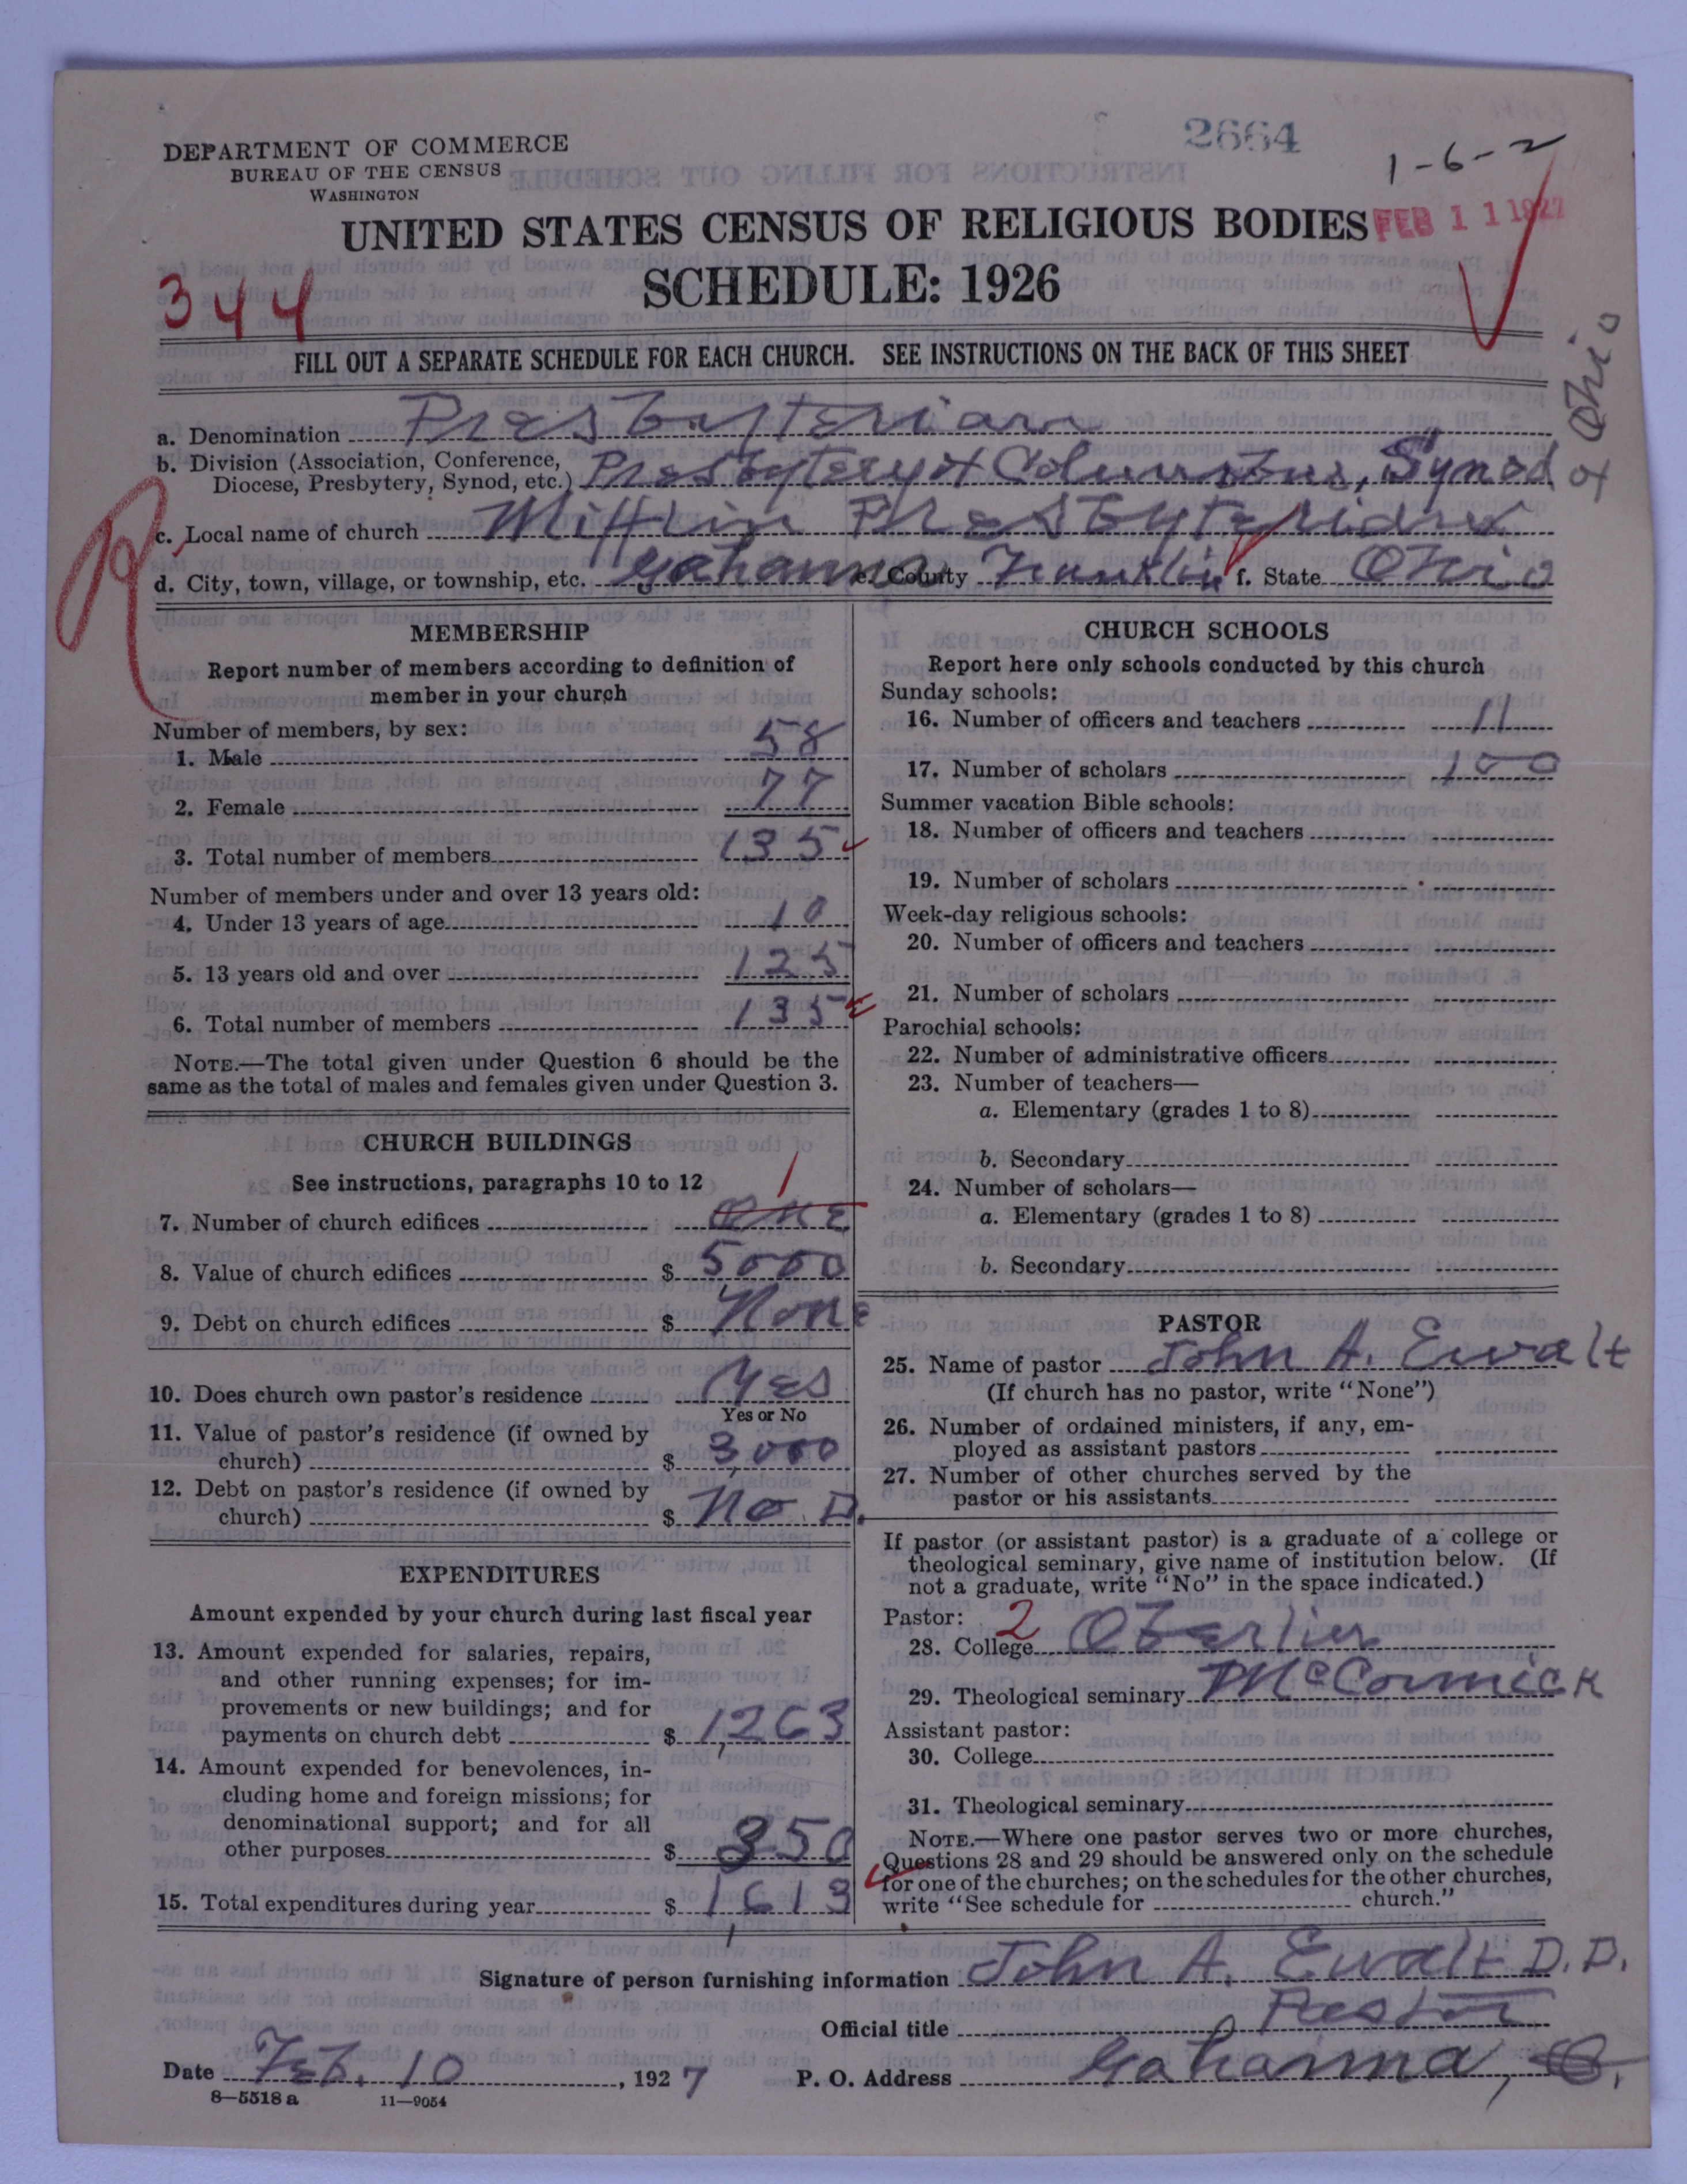 2664
DEPARTMENT OF COMMERCE
BUREAU OF THE CENSUS
WASHINGTON
1-6-2
UNITED STATES CENSUS OF RELIGIOUS BODIES
FEB 11 1927
SCHEDULE: 1926
344
FILL OUT A SEPARATE SCHEDULE FOR EACH CHURCH. SEE INSTRUCTIONS ON THE BACK OF THIS SHEET
a. Denomination Presbyterian
b. Division (Association, Conference, Diocese, Presbytery, Synod, etc.) Presbytery of Columbus, Synod
of Ohio
c. Local name of church Mifflin Presbyterian
d. City, town, village, or township, etc. Gahanna e. County Franklin f. State Ohio
MEMBERSHIP
Report number of members according to definition of
member in your church
Number of members, by sex:
1. Male 58
2. Female 77
3. Total number of members 135
Number of members under and over 13 years old:
4. Under 13 years of age 10
5. 13 years old and over 125
6. Total number of members 135
NOTE.—The total given under Question 6 should be the
same as the total of males and females given under Question 3.
CHURCH BUILDINGS
See instructions, paragraphs 10 to 12
1
7. Number of church edifices One
8. Value of church edifices $ 5000
9. Debt on church edifices $ None
10. Does church own pastor's residence Yes
Yes or No
11. Value of pastor's residence (if owned by
church) $ 3,000
12. Debt on pastor's residence (if owned by
church) $ No. D.
EXPENDITURES
Amount expended by your church during last fiscal year
13. Amount expended for salaries, repairs,
and other running expenses; for im-
provements or new buildings; and for
payments on church debt $ 1,263
14. Amount expended for benevolences, in-
cluding home and foreign missions; for
denominational support; and for all
other purposes $ 350
15. Total expenditures during year $ 1,613
CHURCH SCHOOLS
Report here only schools conducted by this church
Sunday schools:
16. Number of officers and teachers 11
17. Number of scholars 100
Summer vacation Bible schools:
18. Number of officers and teachers
19. Number of scholars
Week-day religious schools:
20. Number of officers and teachers
21. Number of scholars
Parochial schools:
22. Number of administrative officers
23. Number of teachers—
a. Elementary (grades 1 to 8)
b. Secondary
24. Number of scholars—
a. Elementary (grades 1 to 8)
b. Secondary
PASTOR
25. Name of pastor John A. Ewalt
(If church has no pastor, write "None")
26. Number of ordained ministers, if any, em-
ployed as assistant pastors
27. Number of other churches served by the
pastor or his assistants
If pastor (or assistant pastor) is a graduate of a college or
theological seminary, give name of institution below. (If
not a graduate, write "No" in the space indicated.)
Pastor: 2
28. College Oberlin
29. Theological seminary McCormick
Assistant pastor:
30. College
31. Theological seminary
NOTE.—Where one pastor serves two or more churches,
Questions 28 and 29 should be answered only on the schedule
for one of the churches; on the schedules for the other churches,
write "See schedule for church."
Signature of person furnishing information John A. Ewalt D.D.
Official title Pastor
Date Feb. 10, 1927 P. O. Address Gahanna, O.
8—5518 a 11—9054